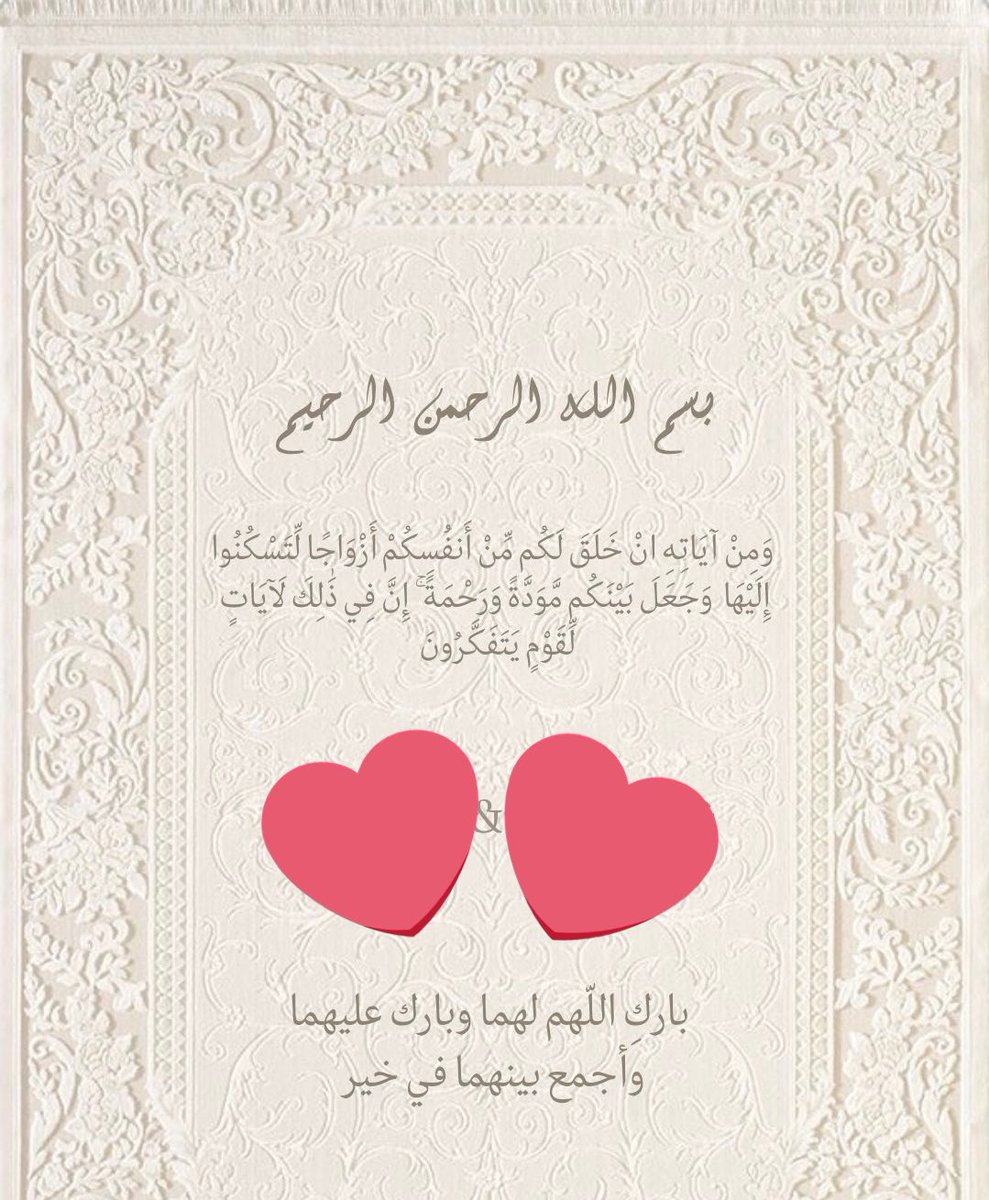 بسم الله الرحمن الرحيم
وَمِنْ آيَاتِه انْ خَلَقَ لَكُم مِّنْ أَنفُسِكُمْ أَزْوَاجًا لِّتَسْكُنُوا
إِلَيْهَا وَجَعَلَ بَيْنَكُم مَّوَدَّةً وَرَحْمَةً ۚ إِنَّ فِي ذَٰلِكَ لَآيَاتٍ
لِّقَوْمٍ يَتَفَكَّرُونَ
&
باركِ اللّهم لهما وبارك عليهما
وأجمع بينهما في خير